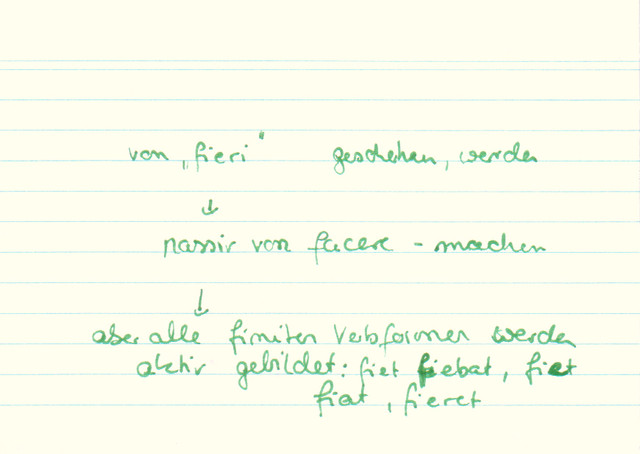 von „fieri" geschehen, werden
↓
passiv von facere - machen
↓
aber alle finiten Verbformen werden
aktiv gebildet: fiet fiebat, fiet
fiat, fieret